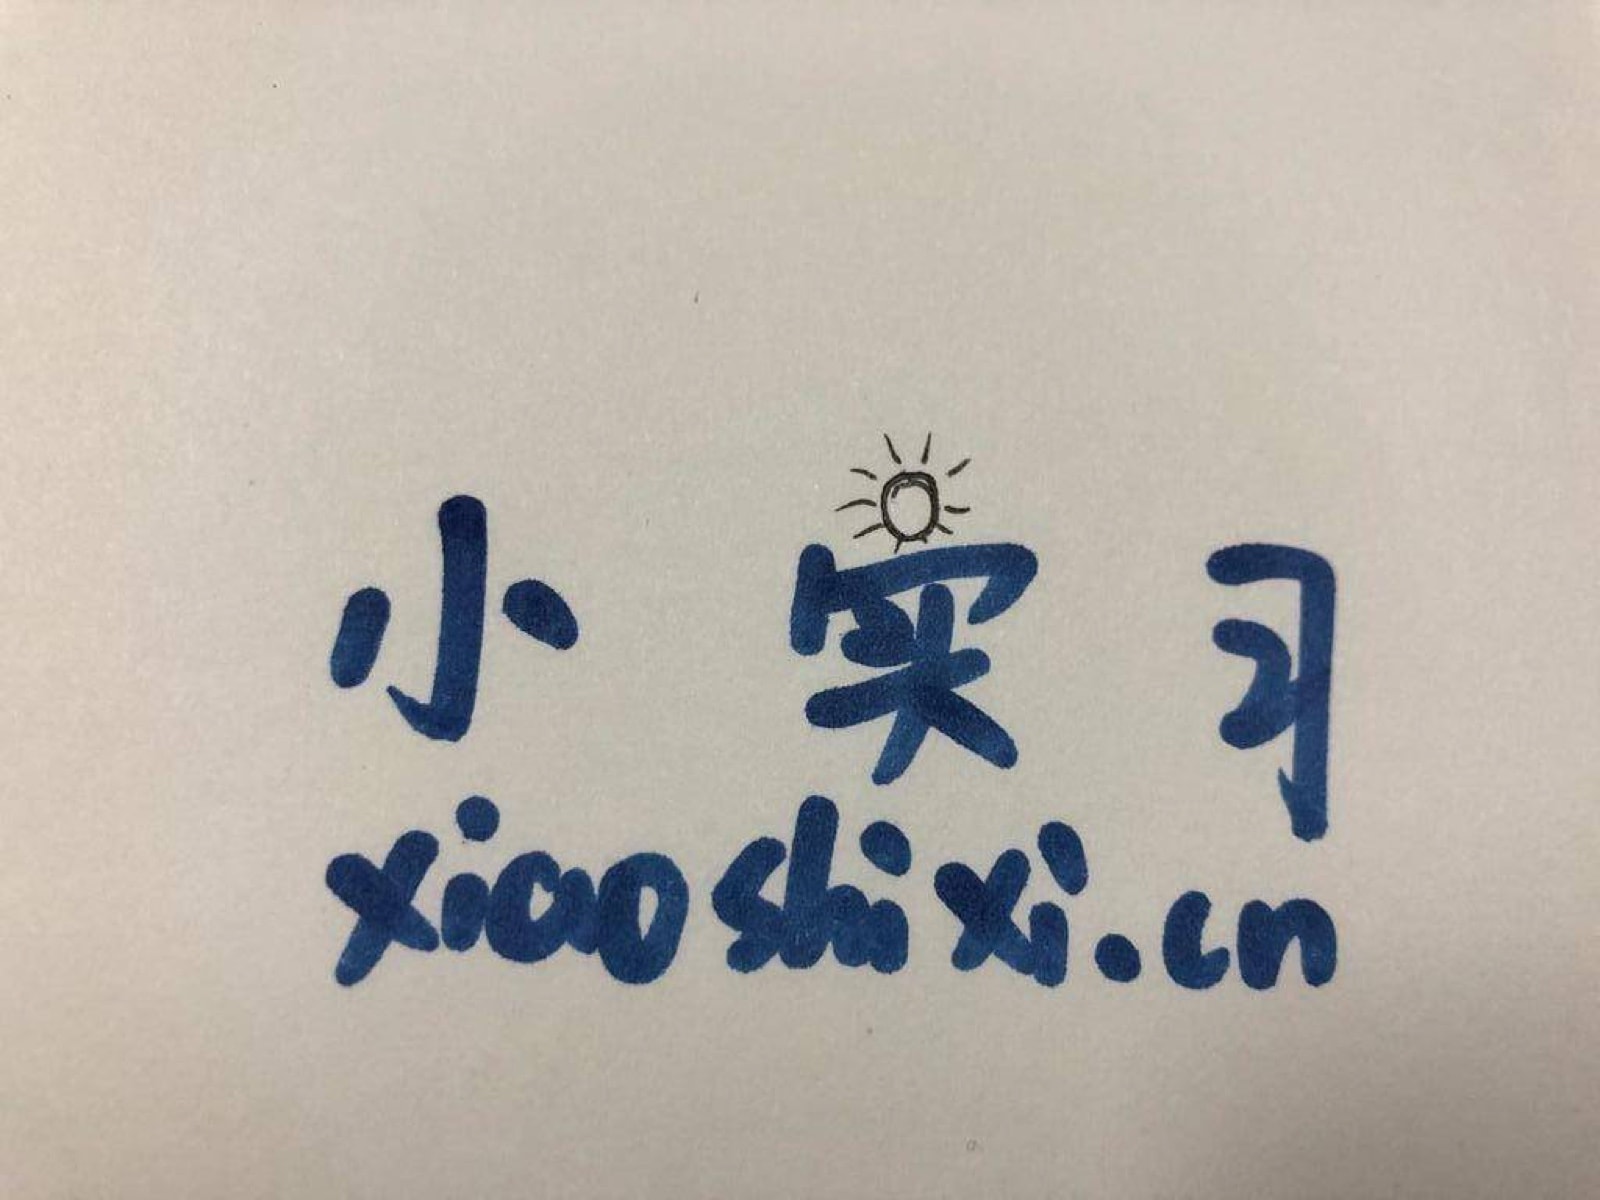 小实习
xiaoshixi.cn